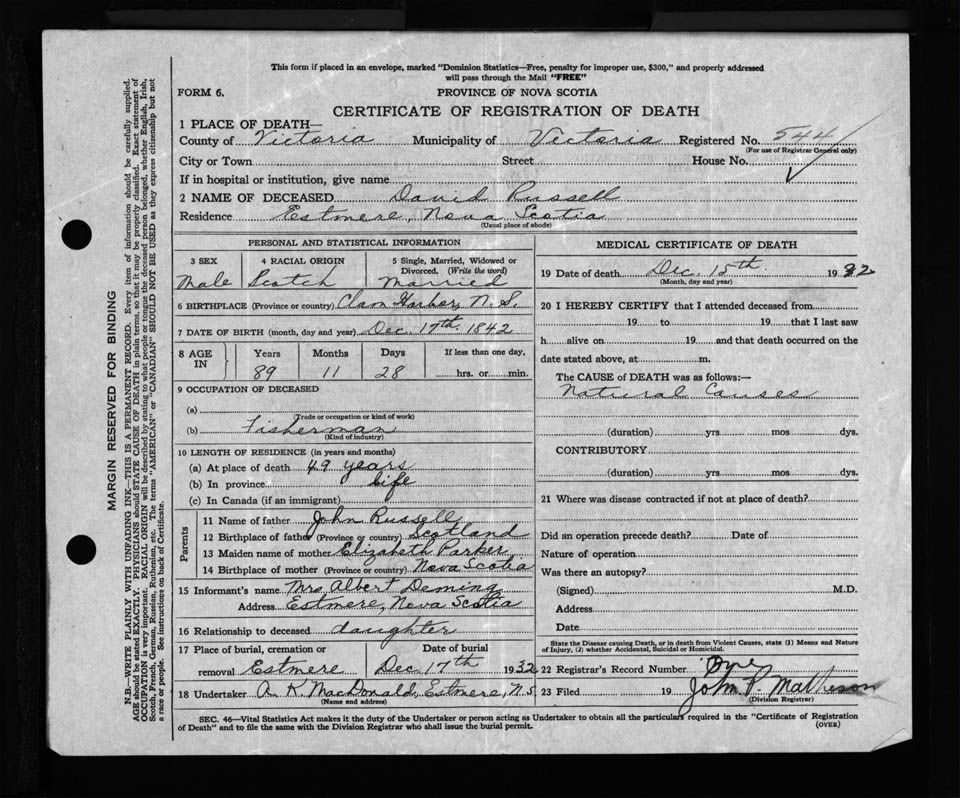 This form if placed in an envelope, marked "Dominion Statistics—Free, penalty for improper use, $300," and properly addressed
will pass through the Mail "FREE"
FORM 6. PROVINCE OF NOVA SCOTIA
CERTIFICATE OF REGISTRATION OF DEATH
1 PLACE OF DEATH—
County of Victoria Municipality of Victoria Registered No. 544
(For use of Registrar General only)
City or Town Street House No.
If in hospital or institution, give name
2 NAME OF DECEASED David Russell
Residence Estmere, Nova Scotia
(Usual place of abode)
PERSONAL AND STATISTICAL INFORMATION
3 SEX 4 RACIAL ORIGIN 5 Single, Married, Widowed or
Divorced. (Write the word)
Male Scotch Married
6 BIRTHPLACE (Province or country) Clam Harbor, N.S.
7 DATE OF BIRTH (month, day and year) Dec. 17th. 1842
8 AGE IN Years Months Days If less than one day,
89 11 28 hrs. or min.
9 OCCUPATION OF DECEASED
(a)
(Trade or occupation or kind of work)
(b) Fisherman
(Kind of industry)
10 LENGTH OF RESIDENCE (in years and months)
(a) At place of death 49 years
(b) In province life
(c) In Canada (if an immigrant)
Parents
11 Name of father John Russell
12 Birthplace of father (Province or country) Scotland
13 Maiden name of mother Elizabeth Parker
14 Birthplace of mother (Province or country) Nova Scotia
15 Informant's name Mrs Albert Deming
Address Estmere, Nova Scotia
16 Relationship to deceased daughter
17 Place of burial, cremation or Date of burial
removal Estmere Dec. 17th 1932
18 Undertaker A. K. MacDonald, Estmere, N.S.
(Name and address)
MEDICAL CERTIFICATE OF DEATH
19 Date of death Dec. 15th. 1932
(Month, day and year)
20 I HEREBY CERTIFY that I attended deceased from
19 to 19 that I last saw
h alive on 19 and that death occurred on the
date stated above, at m.
The CAUSE of DEATH was as follows:—
Natural Causes
(duration) yrs. mos dys.
CONTRIBUTORY
(duration) yrs. mos. dys.
21 Where was disease contracted if not at place of death?
Did an operation precede death? Date of
Nature of operation
Was there an autopsy?
(Signed) M.D.
Address
Date
State the Disease causing Death, or in death from Violent Causes, state (1) Means and Nature
of Injury, (2) whether Accidental, Suicidal or Homicidal.
22 Registrar's Record Number One
23 Filed 19 John P. Matheson
(Division Registrar)
SEC. 46—Vital Statistics Act makes it the duty of the Undertaker or person acting as Undertaker to obtain all the particulars required in the "Certificate of Registration
of Death" and to file the same with the Division Registrar who shall issue the burial permit.
(OVER)
MARGIN RESERVED FOR BINDING
N.B.—WRITE PLAINLY WITH UNFADING INK—THIS IS A PERMANENT RECORD. Every item of information should be carefully supplied.
AGE should be stated EXACTLY. PHYSICIANS should STATE CAUSE OF DEATH in plain terms, so that it may be properly classified. Exact statement of
OCCUPATION is very important. RACIAL ORIGIN will be described by stating to what people or tongue the deceased person belonged, whether English, Irish,
Scotch, French, German, Russian, Ruthenian, etc. The terms "AMERICAN" or "CANADIAN" SHOULD NOT BE USED as they express citizenship but not
a race or people. See instructions on back of Certificate.